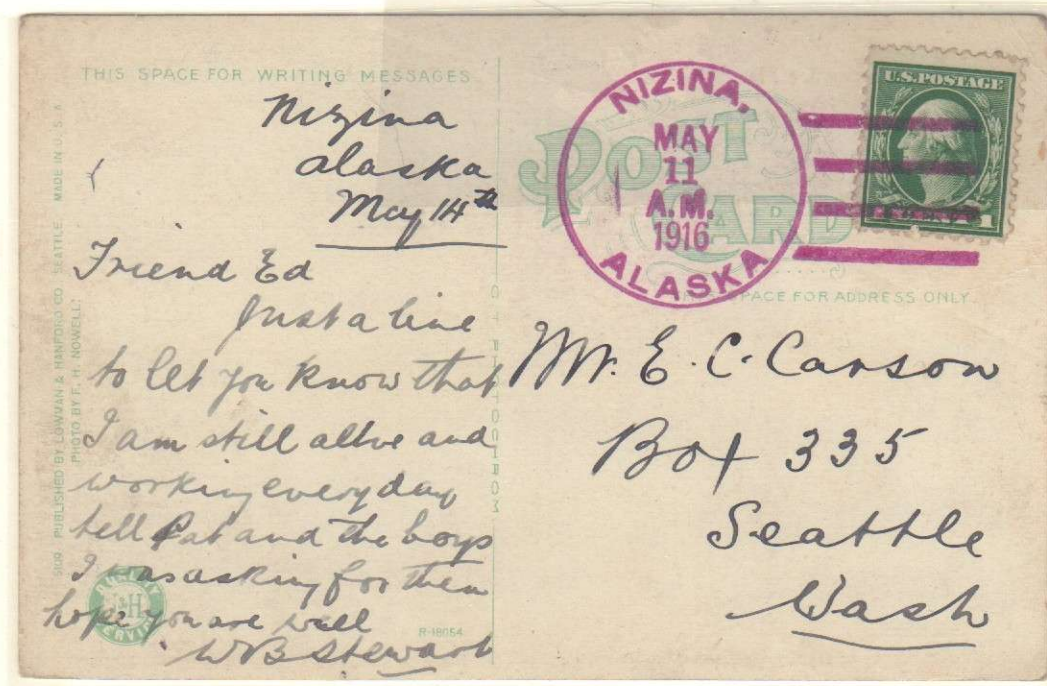 THIS SPACE FOR WRITING MESSAGES
Nizina
Alaska
May 14th
Friend Ed
Just a line
to let you know that
I am still alive and
working every day
tell Pat and the boys
I was asking for them
hope you are well
WB Stewart
R-18054
PUBLISHED BY LOWMAN & HANFORD CO. SEATTLE. MADE IN U.S.A.
PHOTO BY F. H. NOWELL
QUALITY
L&H
SERVICE
POST
CARD
NIZINA,
MAY
11
A.M.
1916
ALASKA
U.S. POSTAGE
1
SPACE FOR ADDRESS ONLY.
Mr. E. C. Carson
Box 335
Seattle
Wash